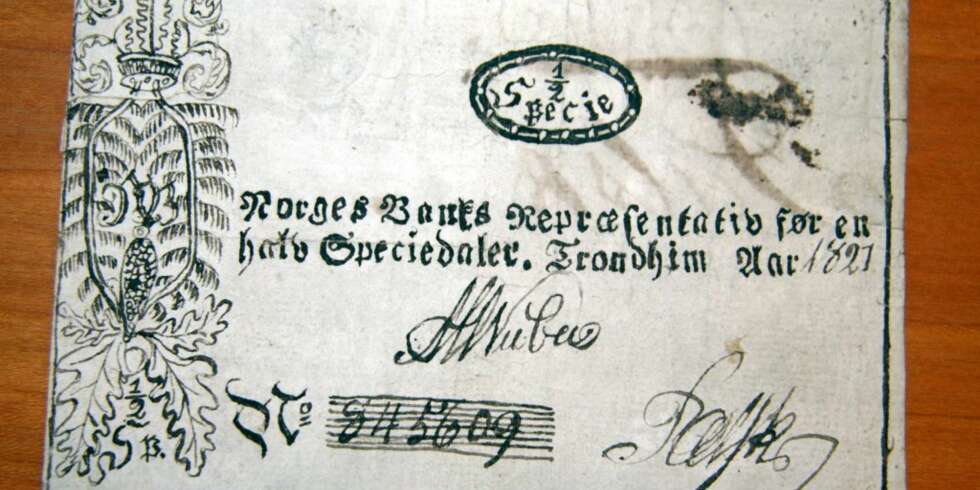 1/2
Specie
Norges Banks Repræsentativ før en
halv Speciedaler. Trondhim Aar 1821
No 845609
1/2
Sp.